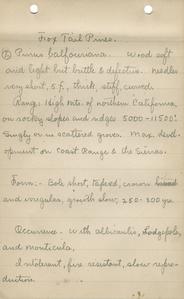 Fox Tail Pines.
Pinus balfouriana. Wood soft
and light but brittle & defective. Needles
very short, 5 f., thick, stiff, curved.
Range: High mts. of northern California,
on rocky slopes and ridges 5000-11500'.
Singly or in scattered groves. Max. devel-
opment on Coast Range & the Sierras.
Form:- Bole short, tapered, crown
and irregular, growth slow, 250-300 yrs.
Occurrence. With albicaulis, Lodgepole,
and monticola,
Intolerant, fire resistant, slow repro-
duction.